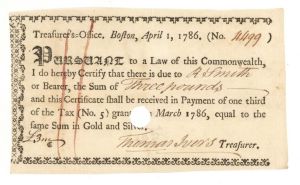 Treasurer's-Office, Boston, April 1, 1786. (No. 4499)
PURSUANT to a Law of this Commonwealth,
I do hereby Certify that there is due to R Smith
or Bearer, the Sum of Three pounds
and this Certificate shall be received in Payment of one third
of the Tax (No. 5) grant March 1786, equal to the
same Sum in Gold and Silver
£3
Thomas Ivers Treasurer.